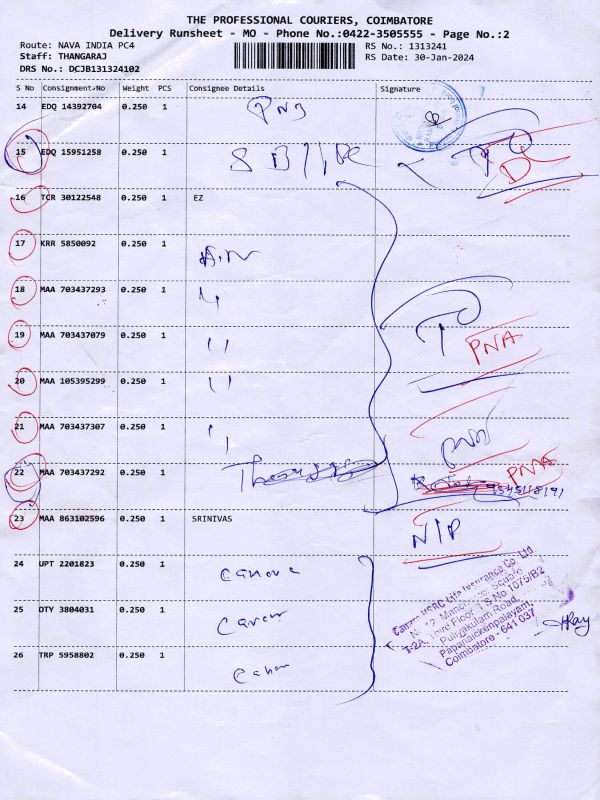 THE PROFESSIONAL COURIERS, COIMBATORE
Delivery Runsheet - MO - Phone No.:0422-3505555 - Page No.:2
Route: NAVA INDIA PC4 RS No.: 1313241
Staff: THANGARAJ RS Date: 30-Jan-2024
DRS No.: DCJB131324102
S No Consignment No Weight PCS Consignee Details Signature
14 EDQ 14392704 0.250 1 PNB
15 EDQ 15951258 0.250 1
16 TCR 30122548 0.250 1 EZ
17 KRR 5850092 0.250 1
18 MAA 703437293 0.250 1 "
19 MAA 703437079 0.250 1 "
PNA
20 MAA 105395299 0.250 1 "
21 MAA 703437307 0.250 1 "
22 MAA 703437292 0.250 1 PNA
23 MAA 863102596 0.250 1 SRINIVAS N/P
24 UPT 2201823 0.250 1
25 DTY 3804031 0.250 1
26 TRP 5958802 0.250 1
Canara HSBC Life Insurance Co. Ltd
T-2A, Third Floor, T.S.No 1075/B2
Puliyakulam Road,
Papanaickenpalayam,
Coimbatore - 641 037